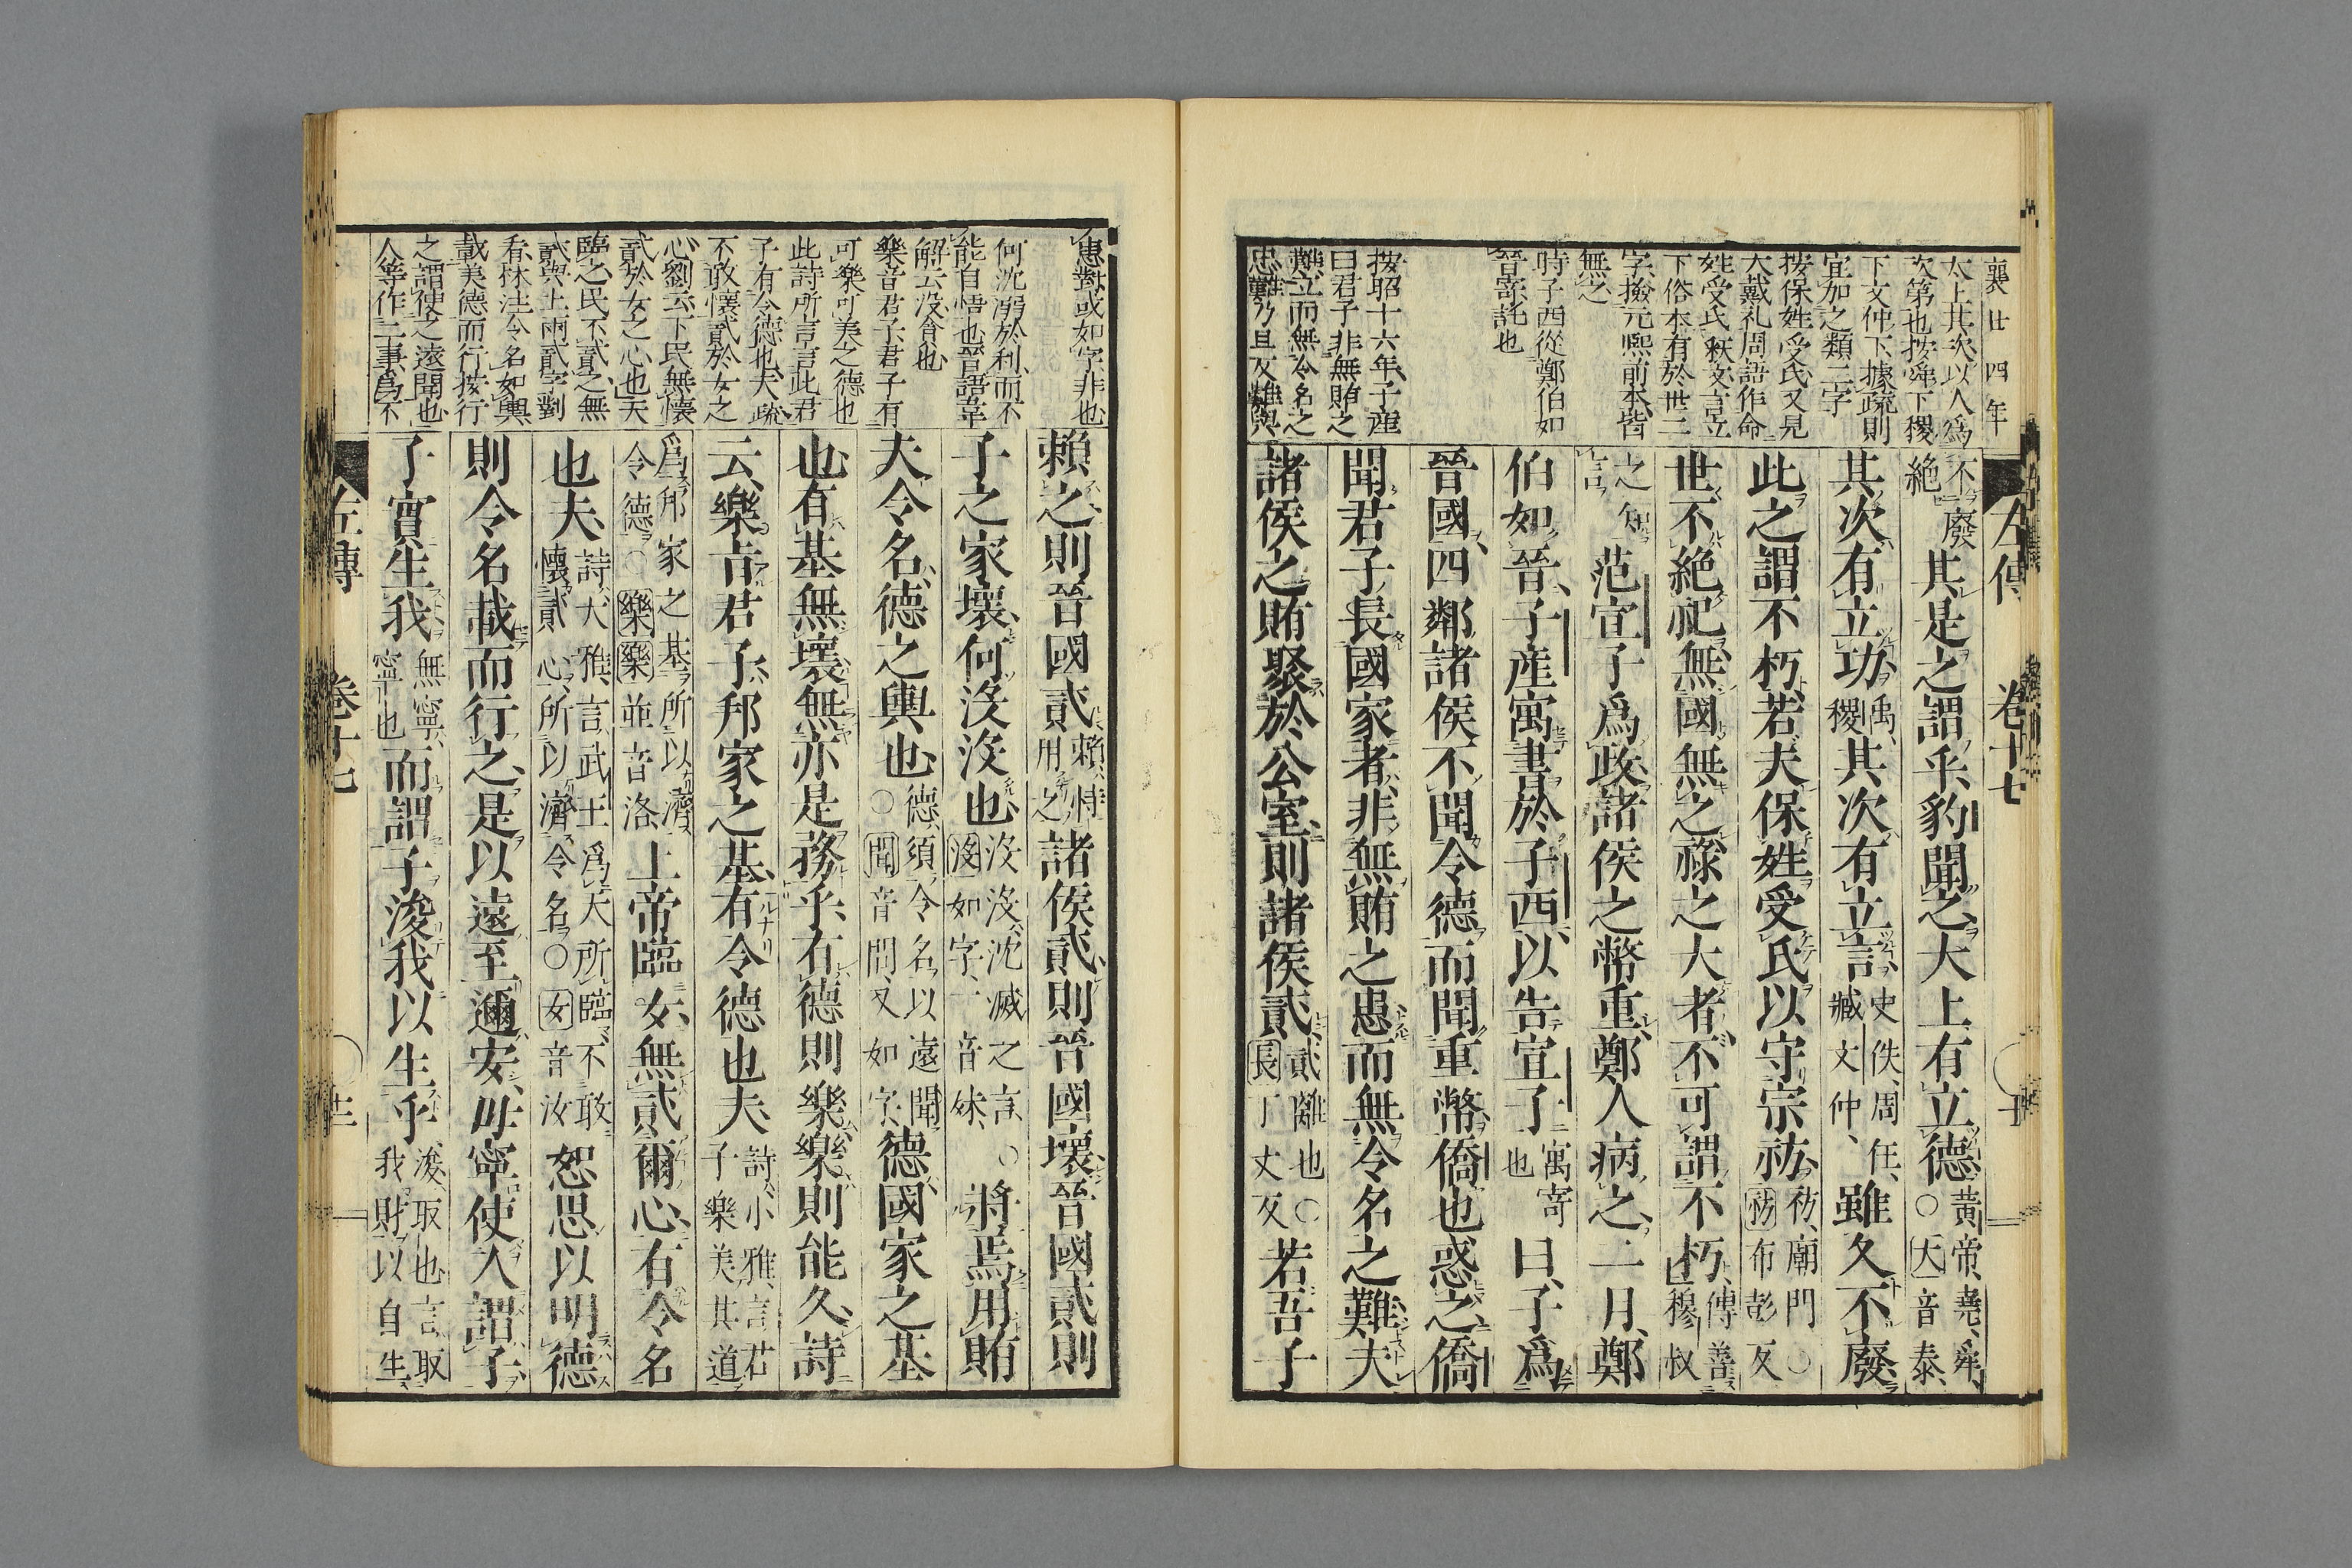 襄廿四年
太上其次以人爲
次第也按舜下稷
下文仲下據疏則
宜加之類二字
按保姓受氏又見
大戴礼周語作命
姓受氏釈文言立
下俗本有於世二
字撿元熙前本皆
無之
時子西從鄭伯如
晉寄託也
按昭十六年子産
曰君子非無賄之
難立而無令名之
患難乃旦反難與
左傳 卷十七
不廢絶其是之謂乎豹聞之大上有立德黄帝堯舜○大音泰
其次有立功禹稷其次有立言史佚周任臧文仲雖久不廢
此之謂不朽若夫保姓受氏以守宗祊祊廟門○祊布彭反
世不絶祀無國無之祿之大者不可謂不朽傳善穆叔
之知言范宣子爲政諸侯之幣重鄭人病之二月鄭
伯如晉子産寓書於子西以告宣子寓寄也曰子爲
晉國四鄰諸侯不聞令德而聞重幣僑也惑之僑
聞君子長國家者非無賄之患而無令名之難夫
諸侯之賄聚於公室則諸侯貳貳離也○長丁丈反若吾子
患對或如字非也
何沈溺於利而不
能自悟也晉語韋
解云没貪也
樂音君子君子有
可樂可美之德也
此詩所言言此君
子有令德也夫疏
不敢懷貳於女之
心劉云下民無懷
貳於女之心也天
臨之民不貳之無
貳與上兩貳字對
看林注令名如輿
載美德而行按行
之謂使之遠聞也
人等作二事爲不
賴之則晉國貳賴恃用之諸侯貳則晉國壞晉國貳則
子之家壞何沒沒也沒沒沈滅之言○沒如字一音妹將焉用賄
夫令名德之輿也德須令名以遠聞○聞音問又如字德國家之基
也有基無壞無亦是務乎有德則樂樂則能久詩
云樂旨君子邦家之基有令德也夫詩小雅言君子樂美其道
爲邦家之基所以濟令德○樂樂並音洛上帝臨女無貳爾心有令名
也夫詩大雅言武王爲天所臨不敢懷貳心所以濟令名○女音汝恕思以明德
則令名載而行之是以遠至邇安毋寧使人謂子
子實生我無寧寧也而謂子浚我以生乎浚取也言取我財以自生
左傳 卷十七